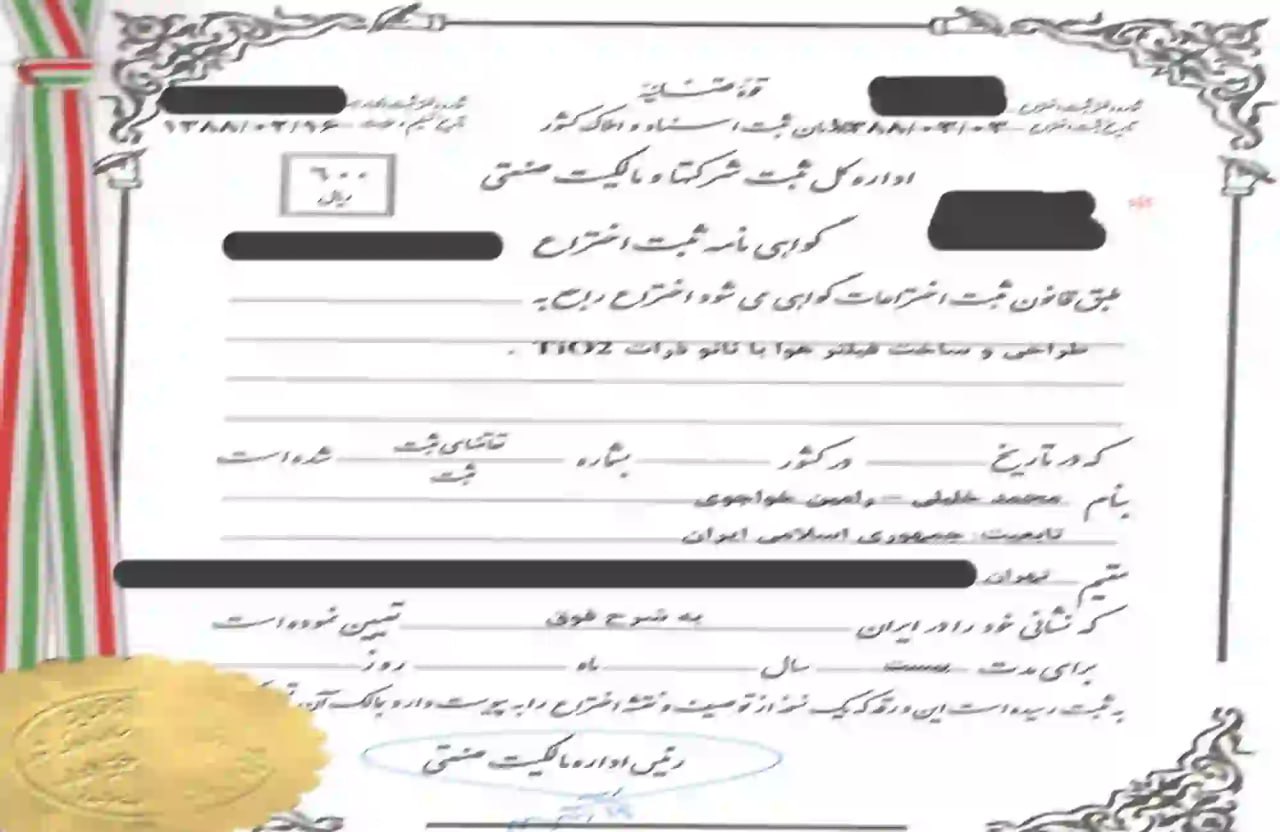 قوه قضائیه
شماره ثبت اختراع
تاریخ ثبت اختراع ۱۳۸۸/۰۳/۰۳
سازمان ثبت اسناد و املاک کشور
۱۳۸۸/۰۳/۱۶
اداره کل ثبت شرکتها و مالکیت صنعتی
۶۰۰
ریال
گواهی نامه ثبت اختراع
طبق قانون ثبت اختراعات گواهی می شود اختراع راجع به
طراحی و ساخت فیلتر هوا با نانو ذرات TiO2 .
که در تاریخ در کشور بشماره تقاضای ثبت شده است
ثبت
بنام محمد خلیلی - رامین خواجوی
تابعیت: جمهوری اسلامی ایران
مقیم تهران
که نشانی خود را در ایران به شرح فوق تعیین نموده است
برای مدت بیست سال ماه روز
به ثبت رسیده است این ورقه که یک نسخه از توصیف و نقشه اختراع را به پیوست دارد بمالک آن
رئیس اداره مالکیت صنعتی